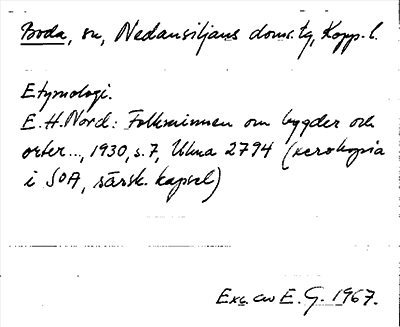 Boda, sn, Nedansiljans doms.tg, Kopp. l.
Etymologi.
E.H. Nord: Folkminnen om bygder och
orter..., 1930, s. 7, Ulma 2794 (xerokopia
i SOA, särsk. kapsel)
Exc. av E. G. 1967.